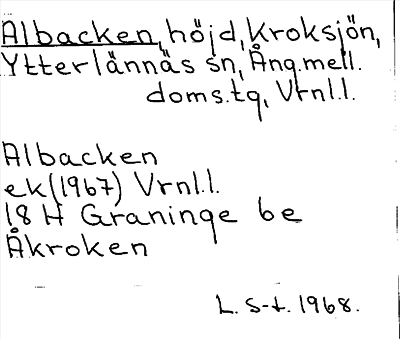 Albacken, höjd, Kroksjön,
Ytterlännäs sn, Ång.mell.
doms.tg, Vrnl.l.
Albacken
ek(1967) Vrnl.l.
18 H Graninge 6e
Åkroken
L. S-t. 1968.